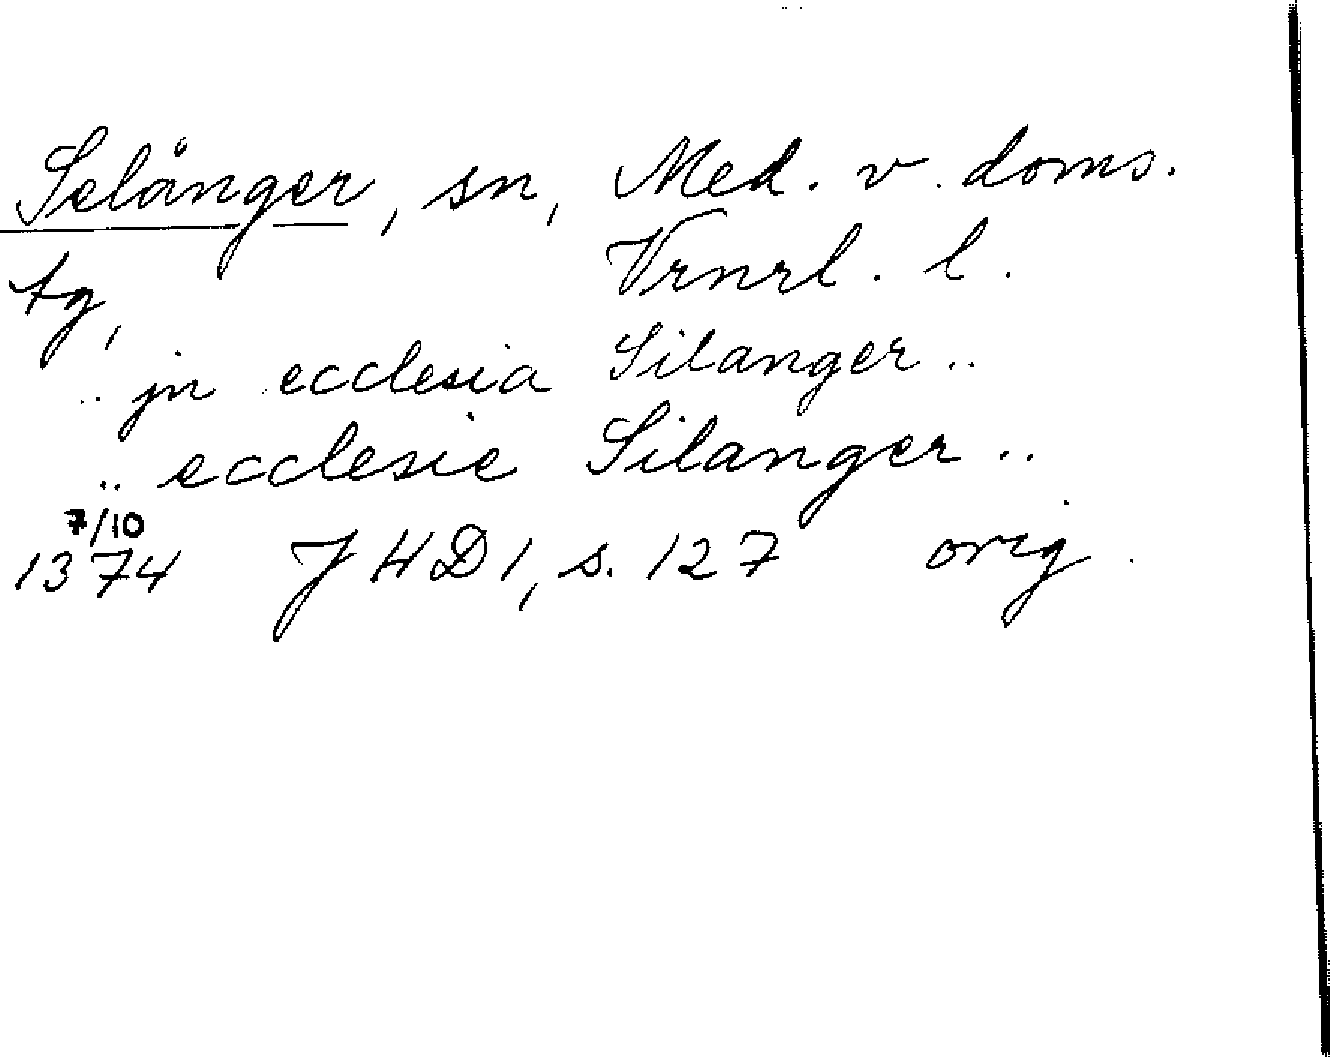 Selånger, sn, Med. v. doms.
tg, Vrnrl. l.
.. jn ecclesia Silanger ..
.. ecclesie Silanger ..
7/10
1374 JHD1, s. 127 orig.